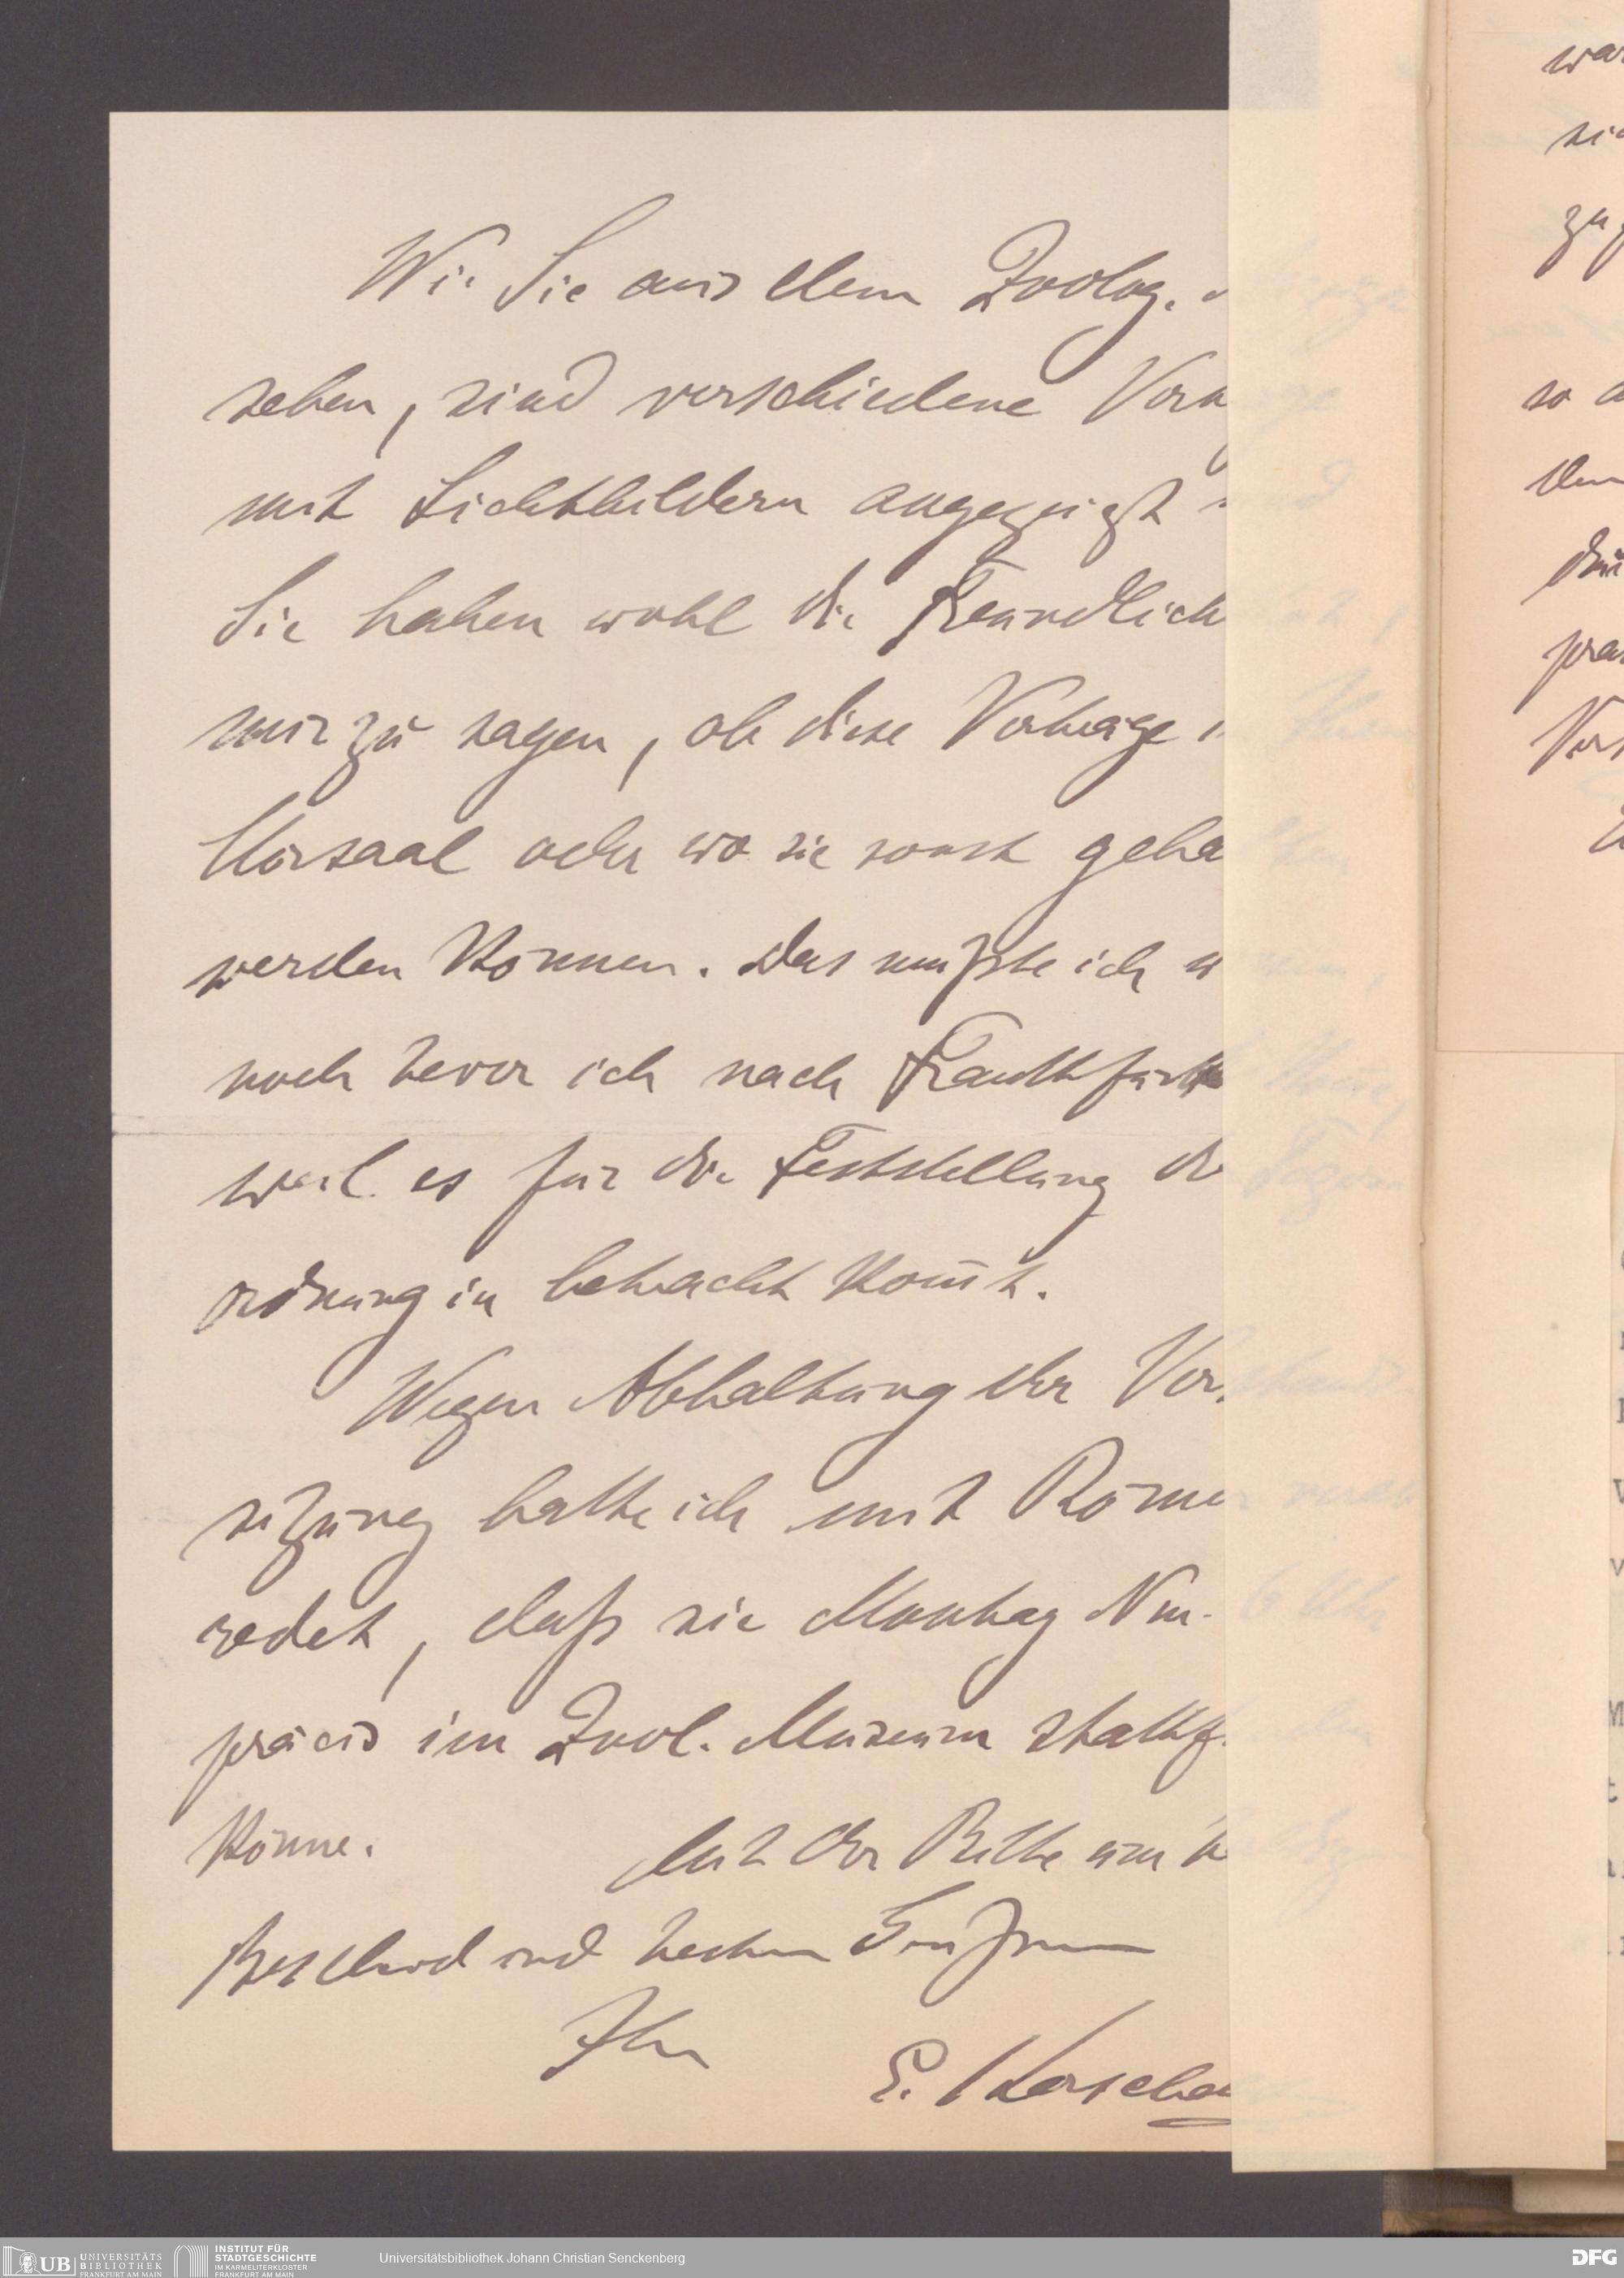 Wie Sie aus dem Zoolog.
sehen, sind verschiedene Vor
mit Lichtbildern angezeigt
Sie haben wohl die Freundlich
mir zu sagen, ob diese Vorträge
Hörsaal oder wo sie sonst geha
werden können. Das müßte ich
noch bevor ich nach Frankfurt
weil es für die Feststellung d
ordnung in betracht kom̅t.
Wegen Abhaltung der Vor
sitzung hatte ich mit Röme
redet, daß sie Montag Nm.
präcis im Zool. Museum stattf
könne.
Mit der Bitte um
Bescheid und besten Grüßen
Ihr
E. Korsche
wa
sic
zu
so
den
pra
Vor
UB UNIVERSITÄTS
BIBLIOTHEK
FRANKFURT AM MAIN
INSTITUT FÜR
STADTGESCHICHTE
IM KARMELITERKLOSTER
FRANKFURT AM MAIN
Universitätsbibliothek Johann Christian Senckenberg
DFG